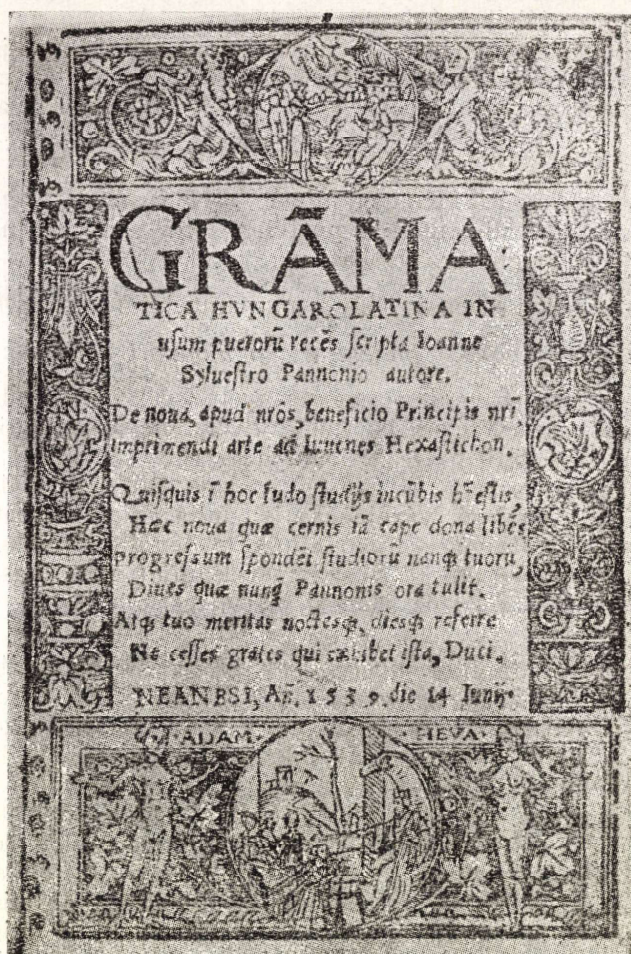 GRĀMA
TICA HVNGAROLATINA IN
usum puerorū recēs scripta Ioanne
Syluestro Pannonio autore.
De noua, apud nr̄os, beneficio Principis nr̄i,
imprimendi arte ad Iuuenes Hexastichon.
Quisquis ī hoc ludo studijs incūbis hōestis,
Hæc noua quæ cernis iā cape dona libēs
Progressum spondēt studiorū nanq; tuorū,
Diues quæ nunq̄ Pannonis ora tulit.
Atq; tuo meritas noctesq;, diesq; referre
Ne cesses grates qui exhibet ista, Duci.
NEANESI, An̄. 1539. die 14 Iunij.
ADAM · HEVA ·